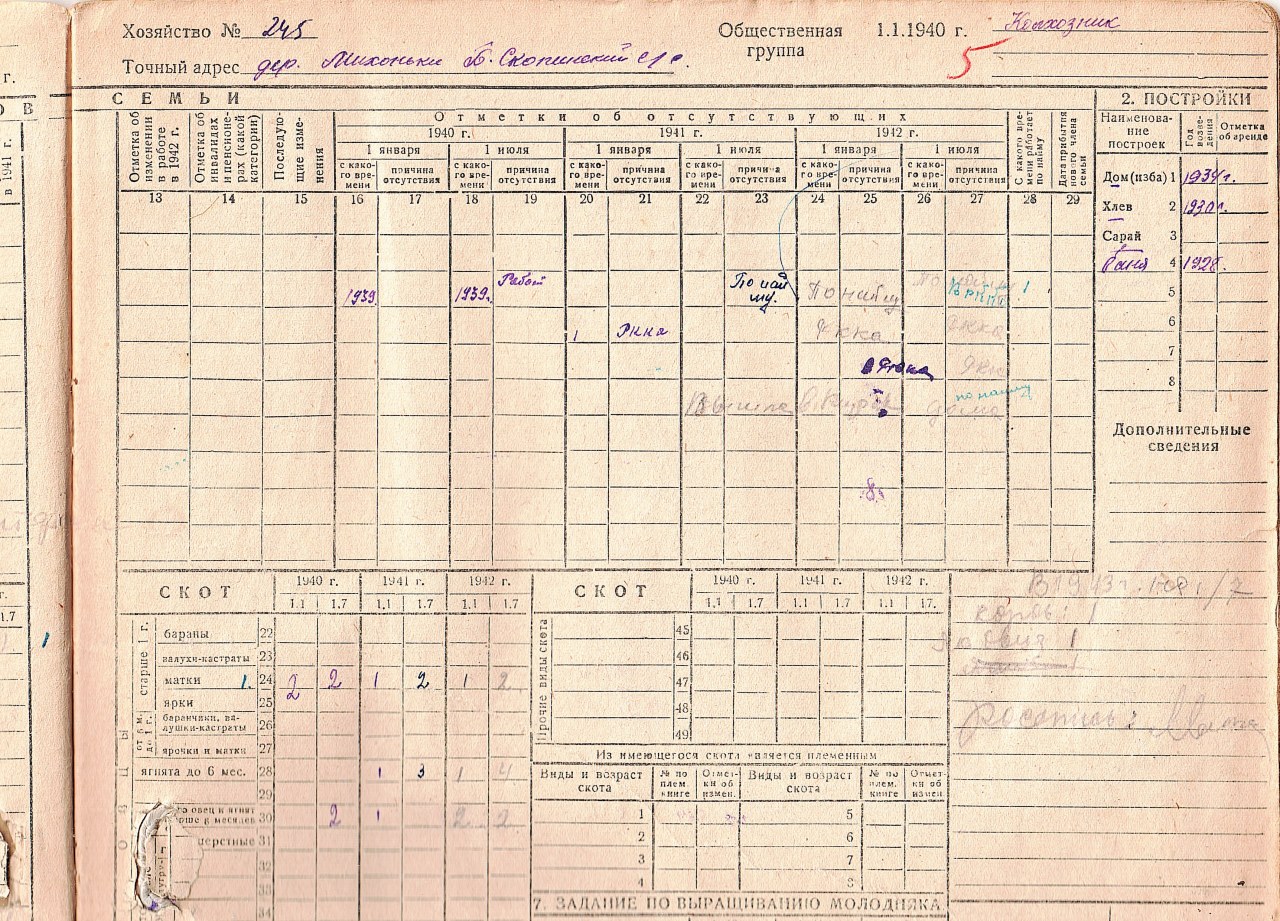 Хозяйство № 245
Общественная группа 1.1.1940 г. Колхозник
5
Точный адрес дер. Михоньки Б. Скопинский с/с.
СЕМЬИ
Отметки об отсутствующих
1940 г. 1941 г. 1942 г.
Отметка об изменении в работе в 1942 г.
Отметка об инвалидах и пенсионерах (какой категории)
Последующие изменения
1 января 1 июля 1 января 1 июля 1 января 1 июля
с какого времени причина отсутствия с какого времени причина отсутствия с какого времени причина отсутствия с какого времени причина отсутствия с какого времени причина отсутствия с какого времени причина отсутствия
С какого времени работает по найму
Дата прибытия нового члена семьи
13 14 15 16 17 18 19 20 21 22 23 24 25 26 27 28 29
1939 1939. Работ По най му. По найму По найму 1
1 Ркка Ркка Ркка
Вышла в Киров дома по найму
8
2. ПОСТРОЙКИ
Наименование построек Год возведения Отметка об аренде
Дом (изба) 1 1934 г.
Хлев 2 1930 г.
Сарай 3
баня 4 1928.
5
6
7
8
Дополнительные сведения
СКОТ 1940 г. 1941 г. 1942 г.
1.1 1.7 1.1 1.7 1.1 1.7
старше 1 г.
бараны 22
валухи-кастраты 23
матки 1. 24 2 2 1 2 1 2
ярки 25
от 6 м. до 1 г.
баранчики, валушки-кастраты 26
ярочки и матки 27
ягнята до 6 мес. 28 1 3 1 4
29
30 2 1 2 2
шерстные 31
32
33
34
СКОТ 1940 г. 1941 г. 1942 г.
1.1 1.7 1.1 1.7 1.1 17.
Прочие виды скота
45
46
47
48
49
Из имеющегося скота является племенным
Виды и возраст скота № по плем. книге Отметки об измен. Виды и возраст скота № по плем. книге Отметки об измен.
1 5
2 6
3 7
4 8
7. ЗАДАНИЕ ПО ВЫРАЩИВАНИЮ МОЛОДНЯКА
В 1943 г. на 1/7
коров 1
овец 1
роспись: